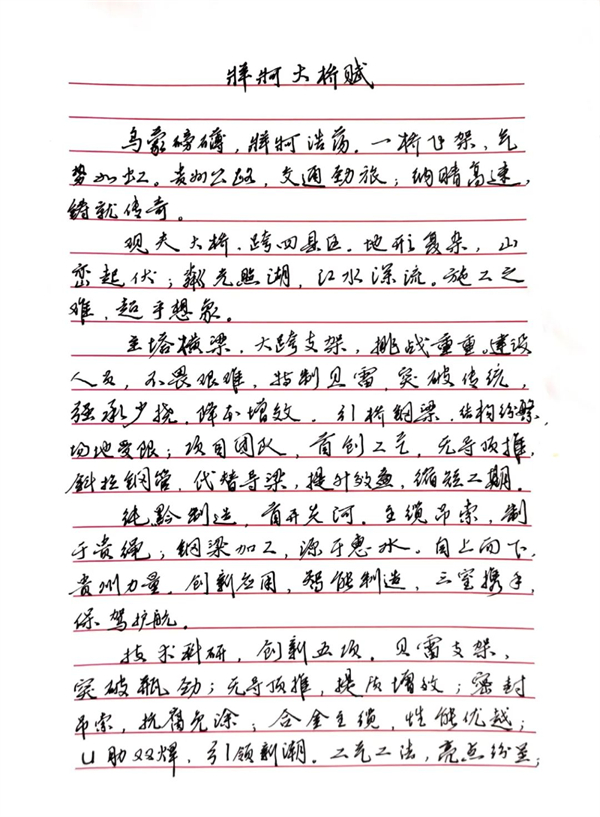 牂牁大桥赋
乌蒙磅礴,牂牁浩荡。一桥飞架,气
势如虹。贵州公路,交通劲旅;纳晴高速,
铸就传奇。
观夫大桥,跨四县区。地形复杂,山
峦起伏;粼光照湖,江水深流。施工之
难,超乎想象。
主塔横梁,大跨支架,挑战重重。建设
人员,不畏艰难,特制贝雷,突破传统,
强承少挠,降本增效。引桥钢梁,结构纷繁,
场地受限;项目团队,首创工艺,无导顶推,
斜拉钢管,代替导梁,提升效益,缩短工期。
纯黔制造,首开先河。主缆吊索,制
于贵绳;钢梁加工,源于惠水。自上而下,
贵州力量。创新应用,智能制造,三室携手,
保驾护航。
技术科研,创新五项。贝雷支架,
突破瓶劲;无导顶推,提质增效;密封
吊索,抗腐免涂;合金主缆,性能优越;
U肋双焊,引领新潮。工艺工法,亮点纷呈;